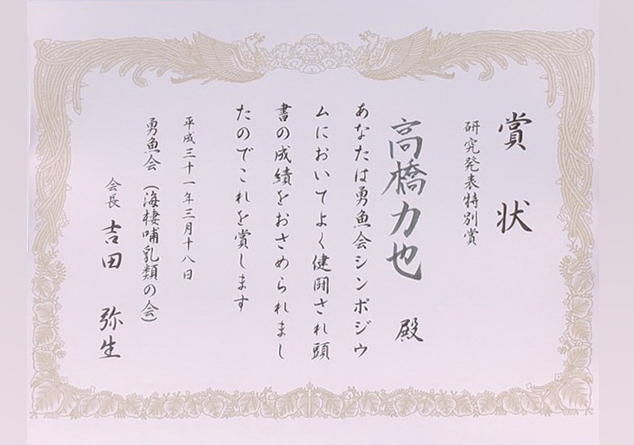 賞状
研究発表特別賞
高橋力也 殿
あなたは勇魚会シンポジウ
ムにおいてよく健闘され頭
書の成績をおさめられまし
たのでこれを賞します
平成三十一年三月十八日
勇魚会（海棲哺乳類の会）
会長 吉田 弥生